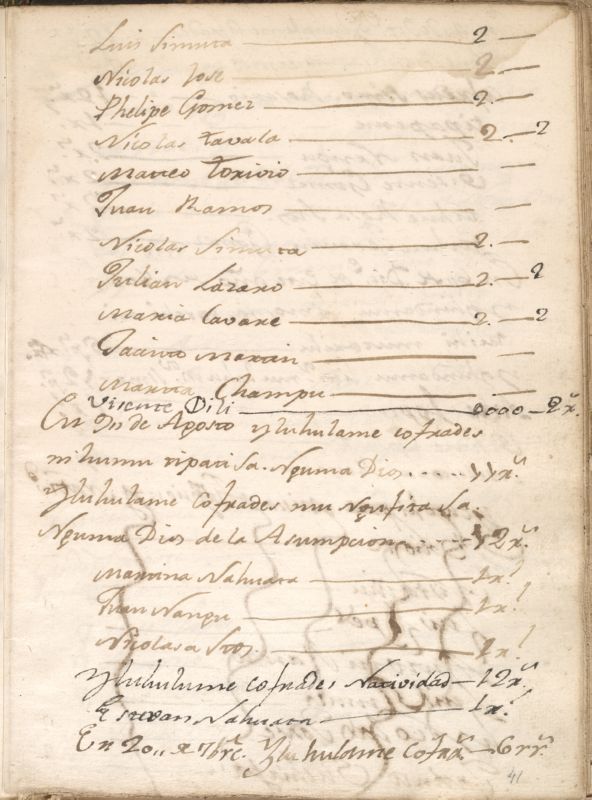 Luis Simuta — 2 —
Nicolas Jose — 2. —
Phelipe Gomez — 2. —
Nicolas Tavala — 2. — 2
Mateo Torivio — —
Juan Ramos — —
Nicolas Simuta — 2. —
Julian Lazaro — 2. — 2
Maria Tavare — 2. — 2
Jacinto Martin — —
Martta Champu — —
Visente Dili — 0000 — 2r.s
En de Agosto yluhulame cofrades
nihumu tipati sa. Nquma Dios
yluhulame cofrades mu sa
Nquma Dios de la Asumpcion — 12r.s
Martina Nahuata — 1r.l
Juan Nanqu — 1r.l
Nicolasa Stos. — 1r.l
yluhulume cofrades Natividad — 12r.s
Estevan Nahuata — 1r.l
En 20,, de 7bre. yluhulame cofra.s — 6rr.s
41